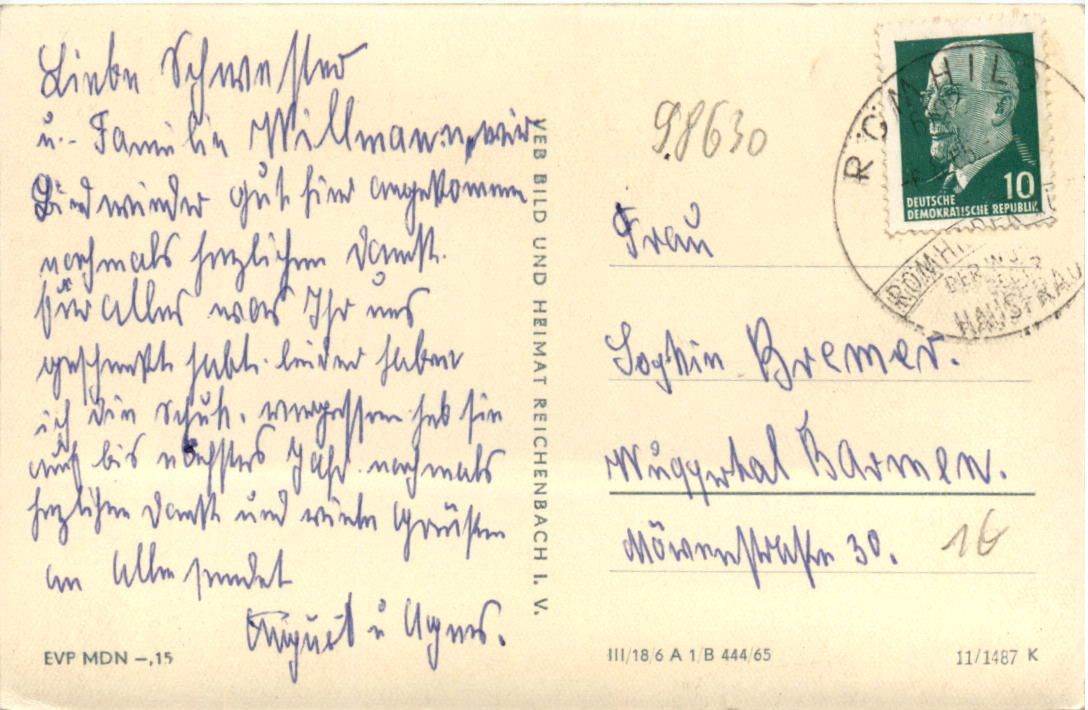 Liebe Schwester
u. Familie Willmann, wir
Sind wieder gut hier angekommen
nochmals herzlichen Dank.
für alles was Ihr uns
geschenkt habt. leider haben
ich die Schuh. vergessen. heb sie
auf bis nächstes Jahr. nochmals
herzlichen Dank und viele Grüßen
an alle sendet
August u Agnes.
EVP MDN –,15
VEB BILD UND HEIMAT REICHENBACH I. V.
98630
RÖMHILD
10
DEUTSCHE
DEMOKRATISCHE REPUBLIK
RÖMHI
HAUSFRAU
Frau
Bremer.
Wuppertal Barmen.
Möwenstraße 30.
16
III/18/6 A 1/B 444/65
11/1487 K